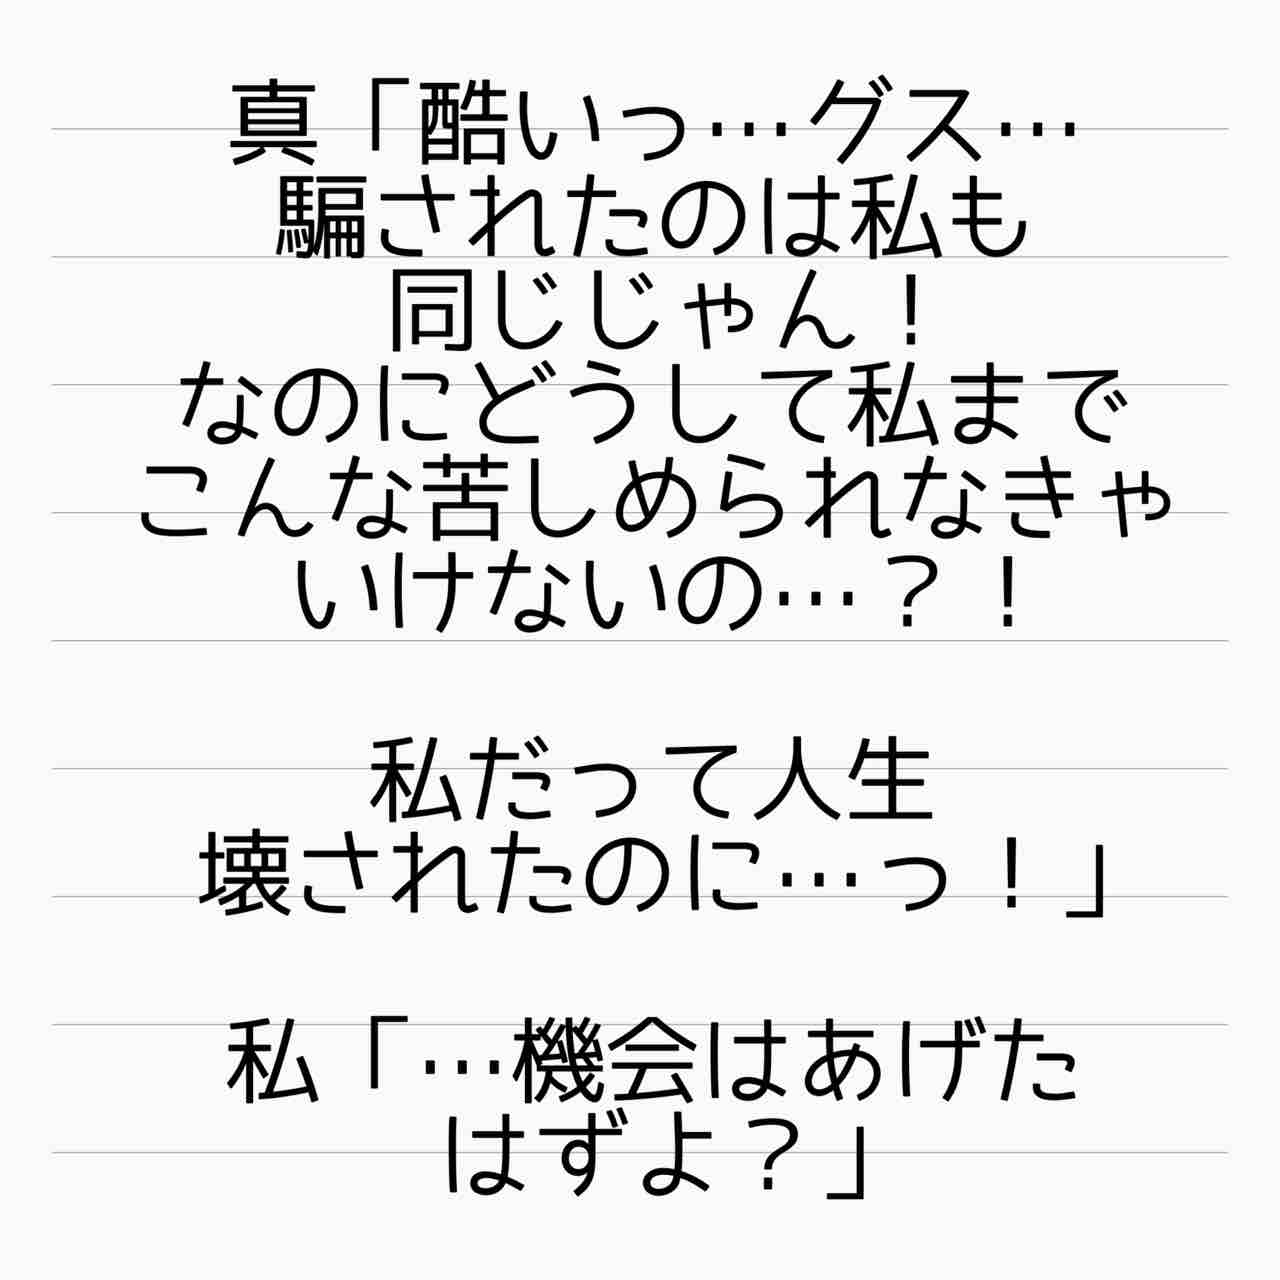 真「酷いっ…グス…
騙されたのは私も
同じじゃん！
なのにどうして私まで
こんな苦しめられなきゃ
いけないの…？！
私だって人生
壊されたのに…っ！」
私「…機会はあげた
はずよ？」